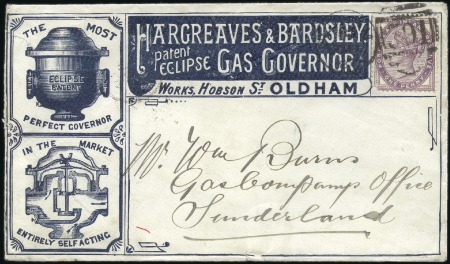 THE MOST
ECLIPSE
PATENT
PERFECT GOVERNOR
IN THE MARKET
ENTIRELY SELF ACTING
HARGREAVES & BARDSLEY
Patent
ECLIPSE GAS GOVERNOR
WORKS, HOBSON ST OLDHAM
Mr Wm Burns
Gas Company Office
Sunderland